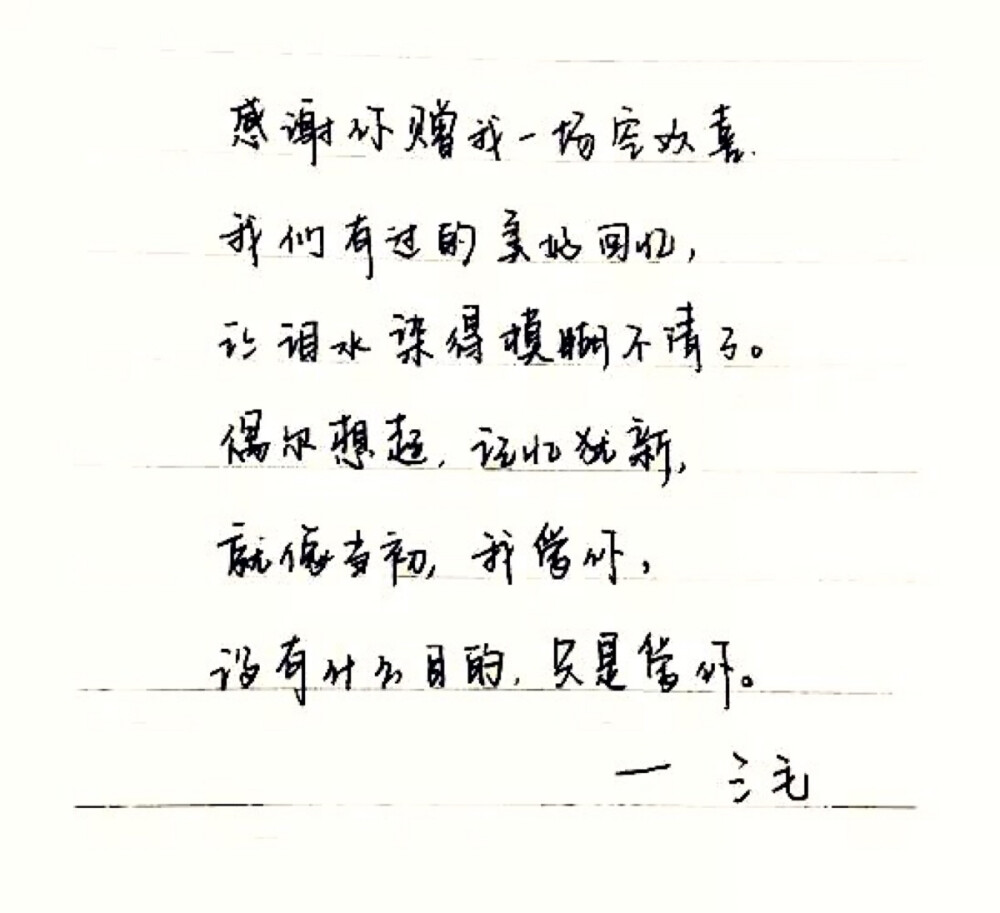 感谢你赠我一场空欢喜.
我们有过的美好回忆,
让泪水染得模糊不清了。
偶尔想起,记忆犹新,
就像当初,我爱你,
没有什么目的,只是爱你。
— 三毛